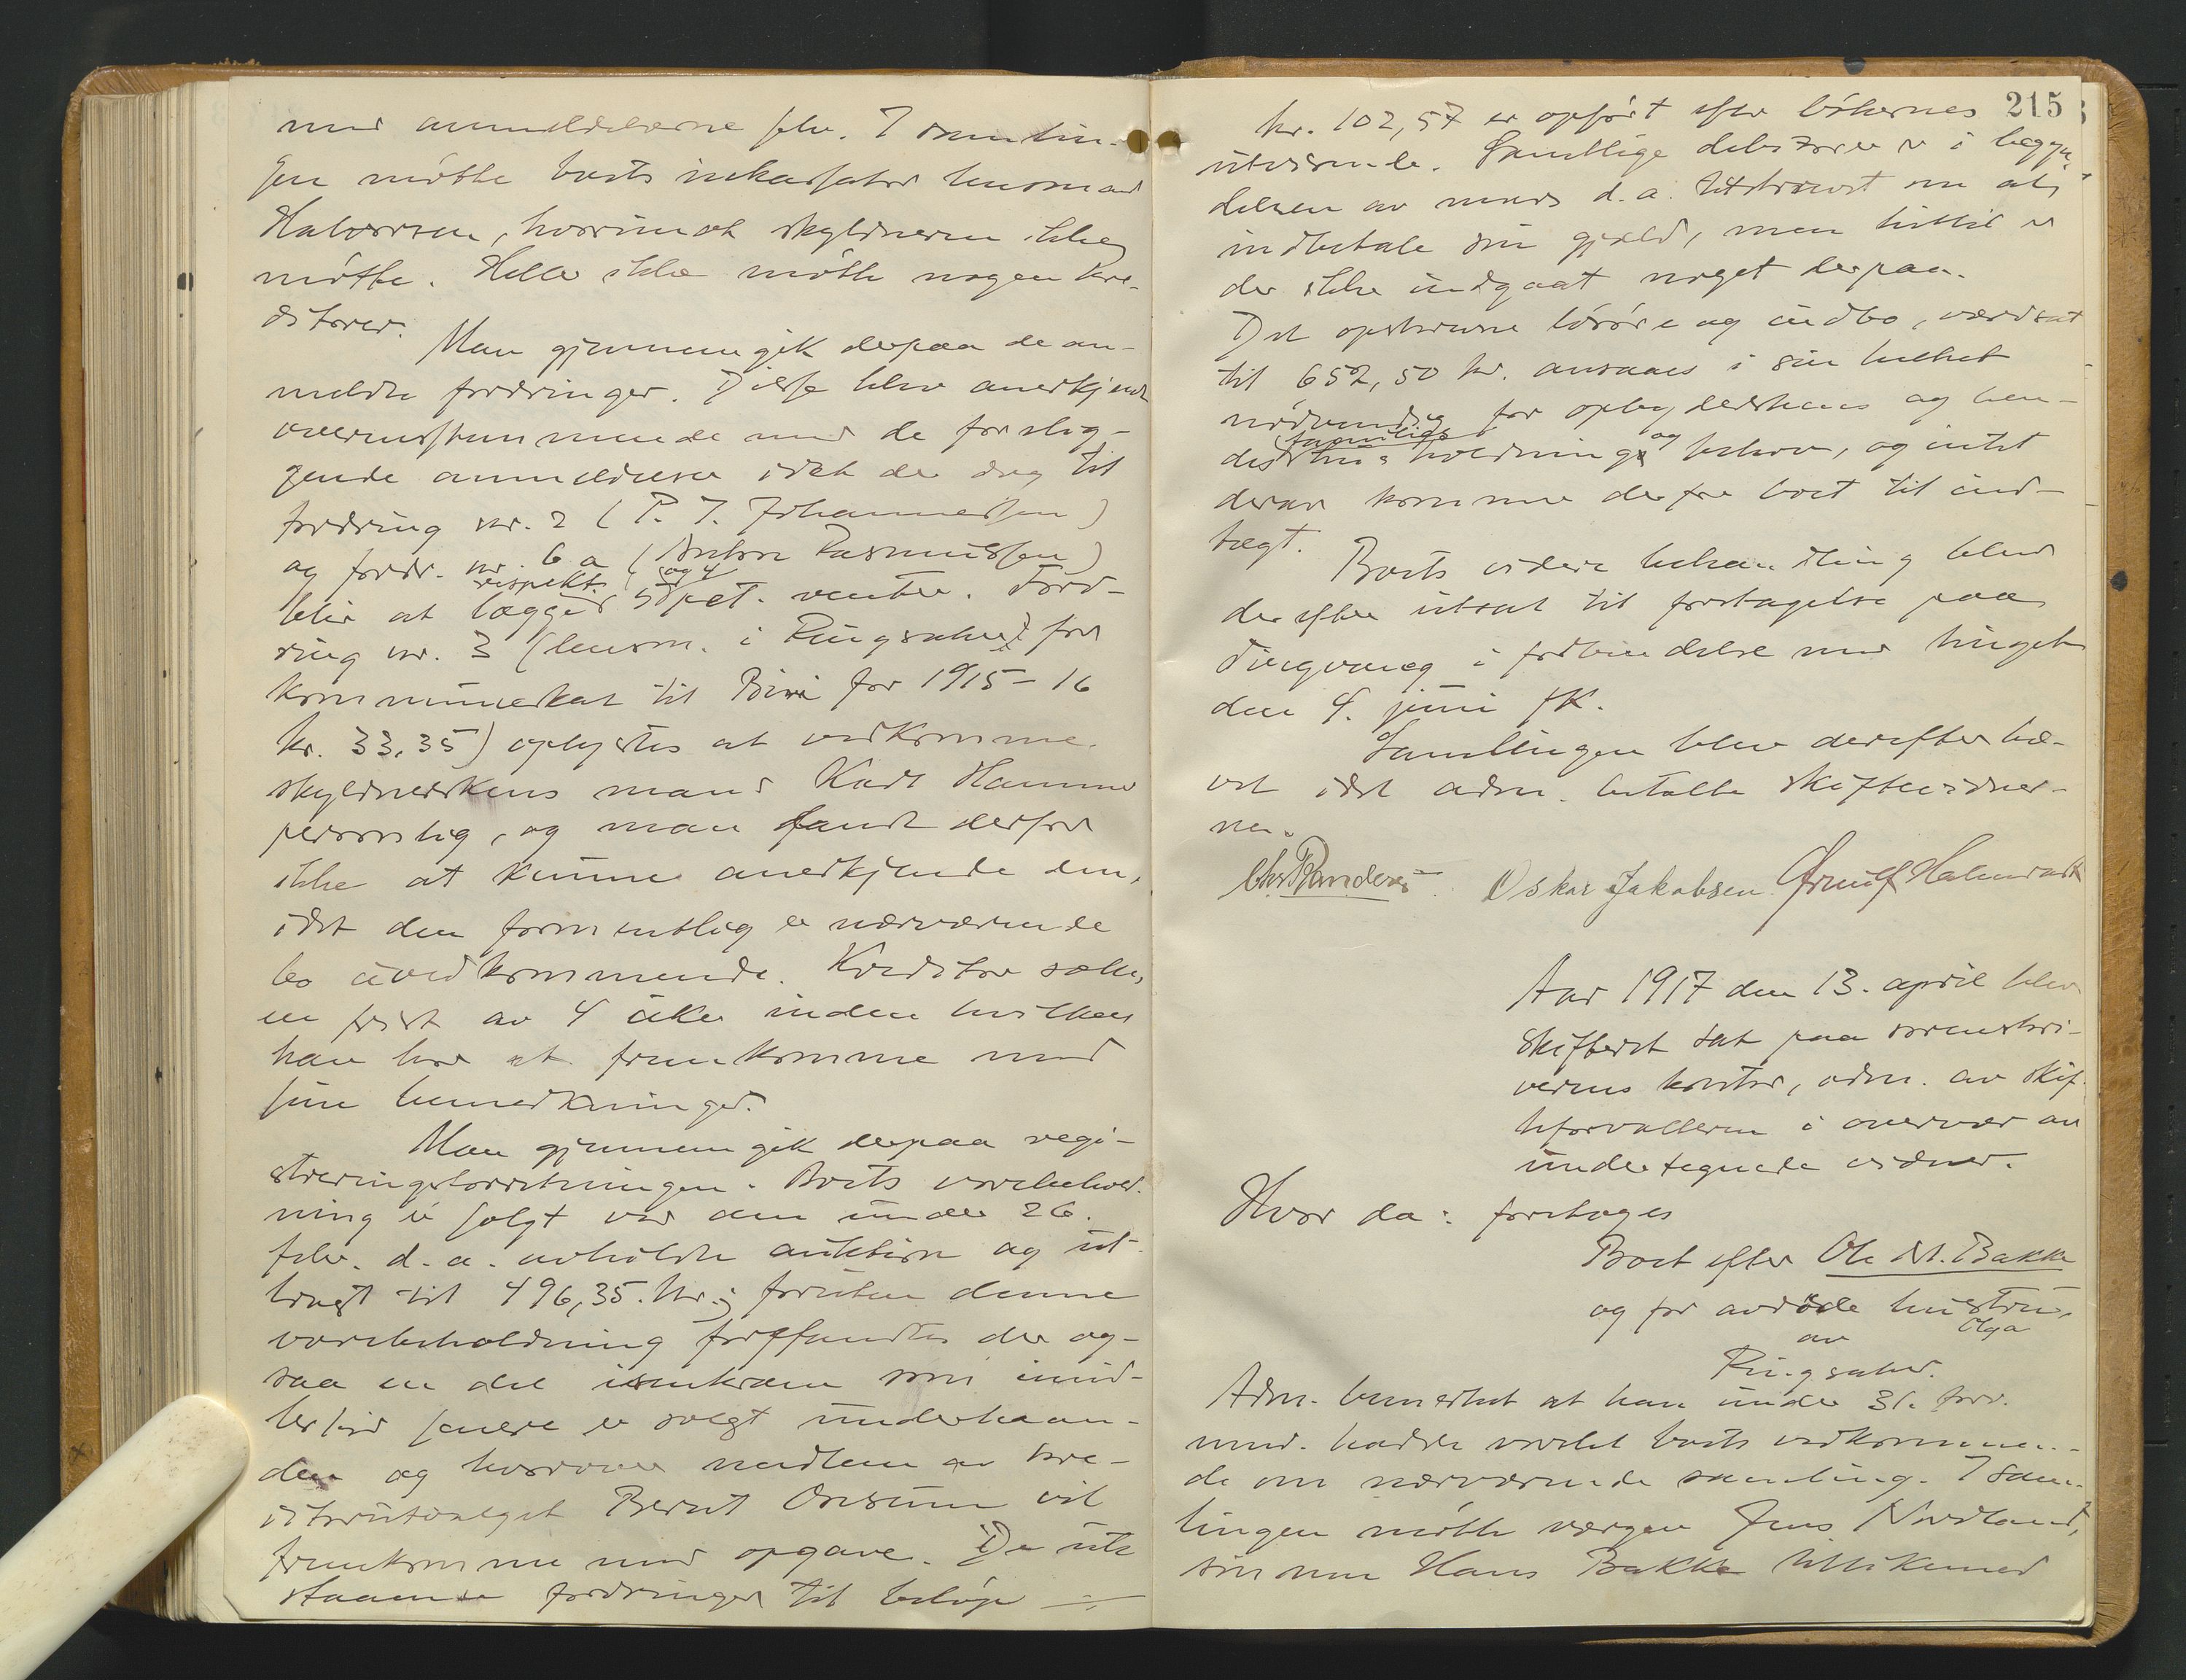 med anmeldelserne selv. I samlin-
gen møtte boets inkassator lensmand
Halvorsen, hvorimot skyldneren ikke
møtte. Heller ikke møtte nogen kre-
ditorer.
Man gjennemgik derpaa de an-
meldte fordringer. Disse blev anerkjendt
overensstemmende med de forelig-
gende anmeldelser idet der dog til
fordring nr. 2 (P. J. Johannessen)
og fordr. nr. 6 a (Anton Rasmussen)
blir at lægge respekt. 5 og 4 pct. renter. Ford-
ring nr. 3 (lensm. i Ringsaker) for
kommuneskat til Biri for 1915-16
kr. 33,35) oplystes at vedkomme
skyldnerskens mand Karl Hammer
personlig, og man fandt derfor
ikke at kunne anerkjende den,
idet den formentlig er nærværende
bo uvedkommende. Kreditor sættes
en frist av 4 uker inden hvilken
han har at fremkomme med
sine bemerkninger.
Man gjennemgik derpaa regi-
streringsforretningen. Boets varebehold-
ning er solgt ved den under 26.
febr. d. a. avholdte auktion og ut-
bragt til 496,35 kr.; foruten denne
varebeholdning forefandtes der og-
saa en del isenkram som imid-
lertid senere er solgt underhaan-
den og hvorover medlem av kre-
ditorutvalget Bernt Onsum vil
fremkomme med opgave. De ute-
staaende fordringer til beløp
215
kr. 102,57 er opført efter bøkernes
utvisende. Samtlige debitorer er i begyn-
delsen av mars d. a. tilskrevet om at
indbetale sin gjæld, men hittil er
der ikke indgaat noget derpaa.
Det opskrevne løsøre og indbo, værdsat
til 652,50 kr. ansaaes i sin helhet
nødvendig for opbyderskens og hen-
des families husholdning og behov, og intet
derav kommer derfor boet til ind-
tægt.
Boets videre behandling blev
derefter utsat til foretagelse paa
Tingvang i forbindelse med tinget
den 4. juni fk.
Samlingen blev derefter hæ-
vet idet adm. betalte skiftevidner-
ne.
Oskar Jakobsen
Aar 1917 den 13. april blev
skifteret sat paa sorenskri-
verens kontor, adm. av skif-
teforvalteren i overvær av
undertegnede vidner.
Hvor da: foretoges
Boet efter Ole M. Bakke
og før avdøde hustru
Olga
av
Ringsaker.
Adm. bemerket at han under 31. forr.
mnd. hadde varslet boets vedkommen-
de om nærværende samling. I sam-
lingen møtte vergen Jens Nordland,
sønnen Hans Bakke tillikemed